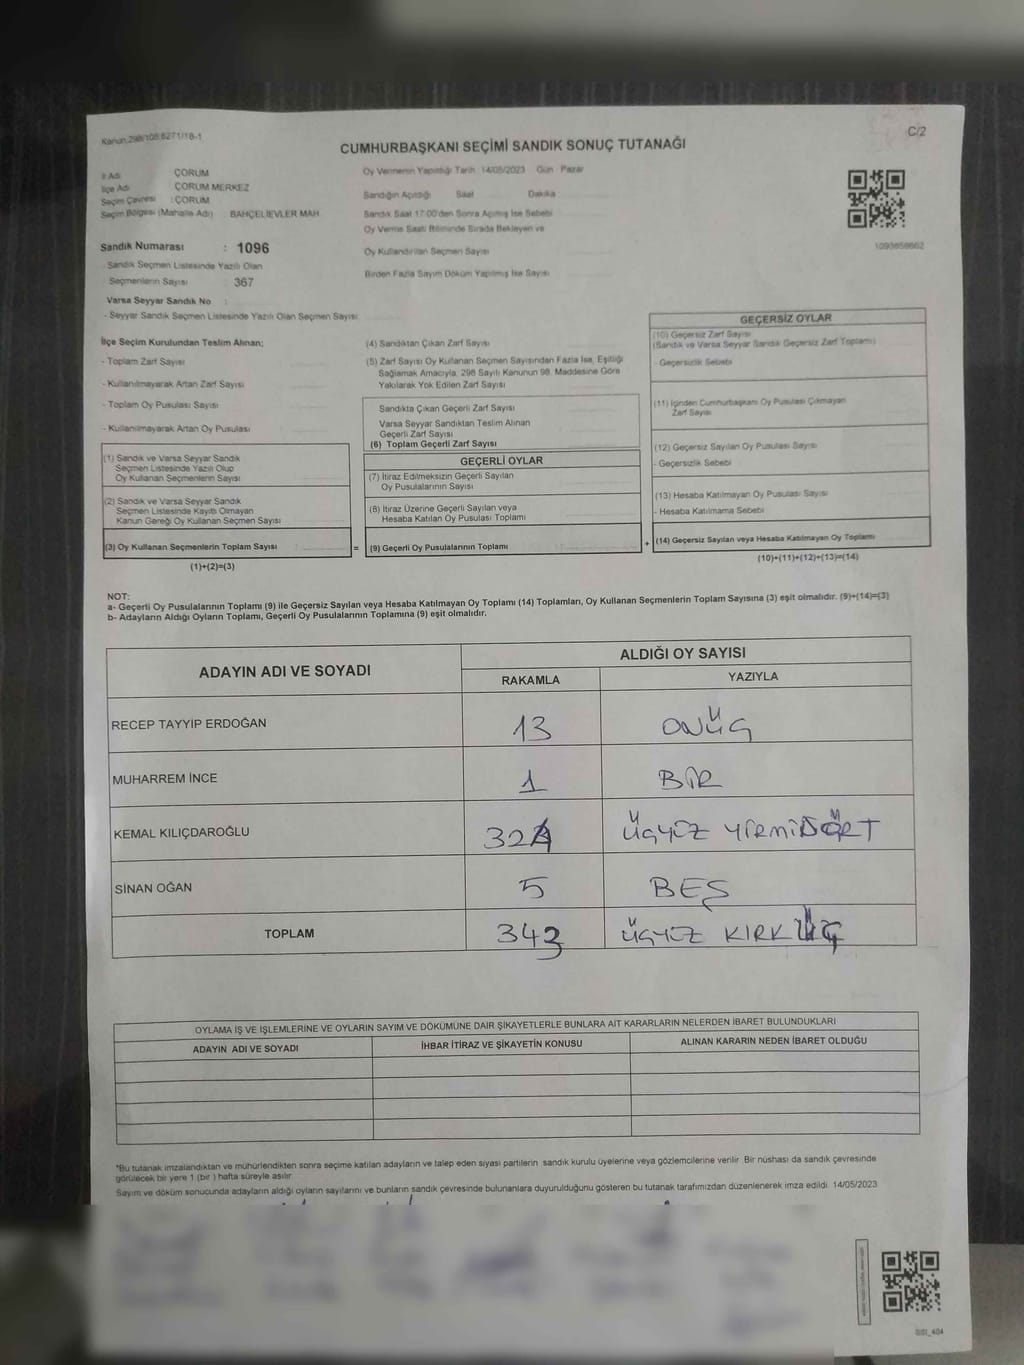 Kanun:298/105:6271/18-1
C/2
CUMHURBAŞKANI SEÇİMİ SANDIK SONUÇ TUTANAĞI
İl Adı ÇORUM
İlçe Adı ÇORUM MERKEZ
Seçim Çevresi : ÇORUM
Seçim Bölgesi (Mahalle Adı) : BAHÇELİEVLER MAH.
Sandık Numarası : 1096
Sandık Seçmen Listesinde Yazılı Olan
Seçmenlerin Sayısı : 367
Varsa Seyyar Sandık No :
- Seyyar Sandık Seçmen Listesinde Yazılı Olan Seçmen Sayısı
Oy Vermenin Yapıldığı Tarih :14/05/2023 Gün : Pazar
Sandığın Açıldığı Saat Dakika
Sandık Saat 17:00'den Sonra Açılmış İse Sebebi
Oy Verme Saati Bitiminde Sırada Bekleyen ve
Oy Kullandırılan Seçmen Sayısı
Birden Fazla Sayım Döküm Yapılmış İse Sayısı
1093658602
İlçe Seçim Kurulundan Teslim Alınan;
- Toplam Zarf Sayısı
- Kullanılmayarak Artan Zarf Sayısı
- Toplam Oy Pusulası Sayısı
- Kullanılmayarak Artan Oy Pusulası
(1) Sandık ve Varsa Seyyar Sandık
Seçmen Listesinde Yazılı Olup
Oy Kullanan Seçmenlerin Sayısı
(2) Sandık ve Varsa Seyyar Sandık
Seçmen Listesinde Kayıtlı Olmayan
Kanun Gereği Oy Kullanan Seçmen Sayısı
(3) Oy Kullanan Seçmenlerin Toplam Sayısı
(1)+(2)=(3)
(4) Sandıktan Çıkan Zarf Sayısı
(5) Zarf Sayısı Oy Kullanan Seçmen Sayısından Fazla İse, Eşitliği
Sağlamak Amacıyla, 298 Sayılı Kanunun 98. Maddesine Göre
Yakılarak Yok Edilen Zarf Sayısı
Sandıkta Çıkan Geçerli Zarf Sayısı
Varsa Seyyar Sandıktan Teslim Alınan
Geçerli Zarf Sayısı
(6) Toplam Geçerli Zarf Sayısı
GEÇERLİ OYLAR
(7) İtiraz Edilmeksizin Geçerli Sayılan
Oy Pusulalarının Sayısı
(8) İtiraz Üzerine Geçerli Sayılan veya
Hesaba Katılan Oy Pusulası Toplamı
= (9) Geçerli Oy Pusulalarının Toplamı +
GEÇERSİZ OYLAR
(10) Geçersiz Zarf Sayısı
(Sandık ve Varsa Seyyar Sandık Geçersiz Zarf Toplamı)
- Geçersizlik Sebebi
(11) İçinden Cumhurbaşkanı Oy Pusulası Çıkmayan
Zarf Sayısı
(12) Geçersiz Sayılan Oy Pusulası Sayısı
- Geçersizlik Sebebi
(13) Hesaba Katılmayan Oy Pusulası Sayısı
- Hesaba Katılmama Sebebi
(14) Geçersiz Sayılan veya Hesaba Katılmayan Oy Toplamı
(10)+(11)+(12)+(13)=(14)
NOT:
a- Geçerli Oy Pusulalarının Toplamı (9) ile Geçersiz Sayılan veya Hesaba Katılmayan Oy Toplamı (14) Toplamları, Oy Kullanan Seçmenlerin Toplam Sayısına (3) eşit olmalıdır. (9)+(14)=(3)
b- Adayların Aldığı Oyların Toplamı, Geçerli Oy Pusulalarının Toplamına (9) eşit olmalıdır.
ADAYIN ADI VE SOYADI ALDIĞI OY SAYISI
RAKAMLA YAZIYLA
RECEP TAYYİP ERDOĞAN 13 ONÜÇ
MUHARREM İNCE 1 BİR
KEMAL KILIÇDAROĞLU 324 ÜÇYÜZ YİRMİDÖRT
SİNAN OĞAN 5 BEŞ
TOPLAM 343 ÜÇYÜZ KIRK ÜÇ
OYLAMA İŞ VE İŞLEMLERİNE VE OYLARIN SAYIM VE DÖKÜMÜNE DAİR ŞİKAYETLERLE BUNLARA AİT KARARLARIN NELERDEN İBARET BULUNDUKLARI
ADAYIN ADI VE SOYADI İHBAR İTİRAZ VE ŞİKAYETİN KONUSU ALINAN KARARIN NEDEN İBARET OLDUĞU
*Bu tutanak imzalandıktan ve mühürlendikten sonra seçime katılan adayların ve talep eden siyasi partilerin sandık kurulu üyelerine veya gözlemcilerine verilir. Bir nüshası da sandık çevresinde
görülecek bir yere 1 (bir) hafta süreyle asılır.
Sayım ve döküm sonucunda adayların aldığı oyların sayılarını ve bunların sandık çevresinde bulunanlara duyurulduğunu gösteren bu tutanak tarafımızdan düzenlenerek imza edildi. 14/05/2023